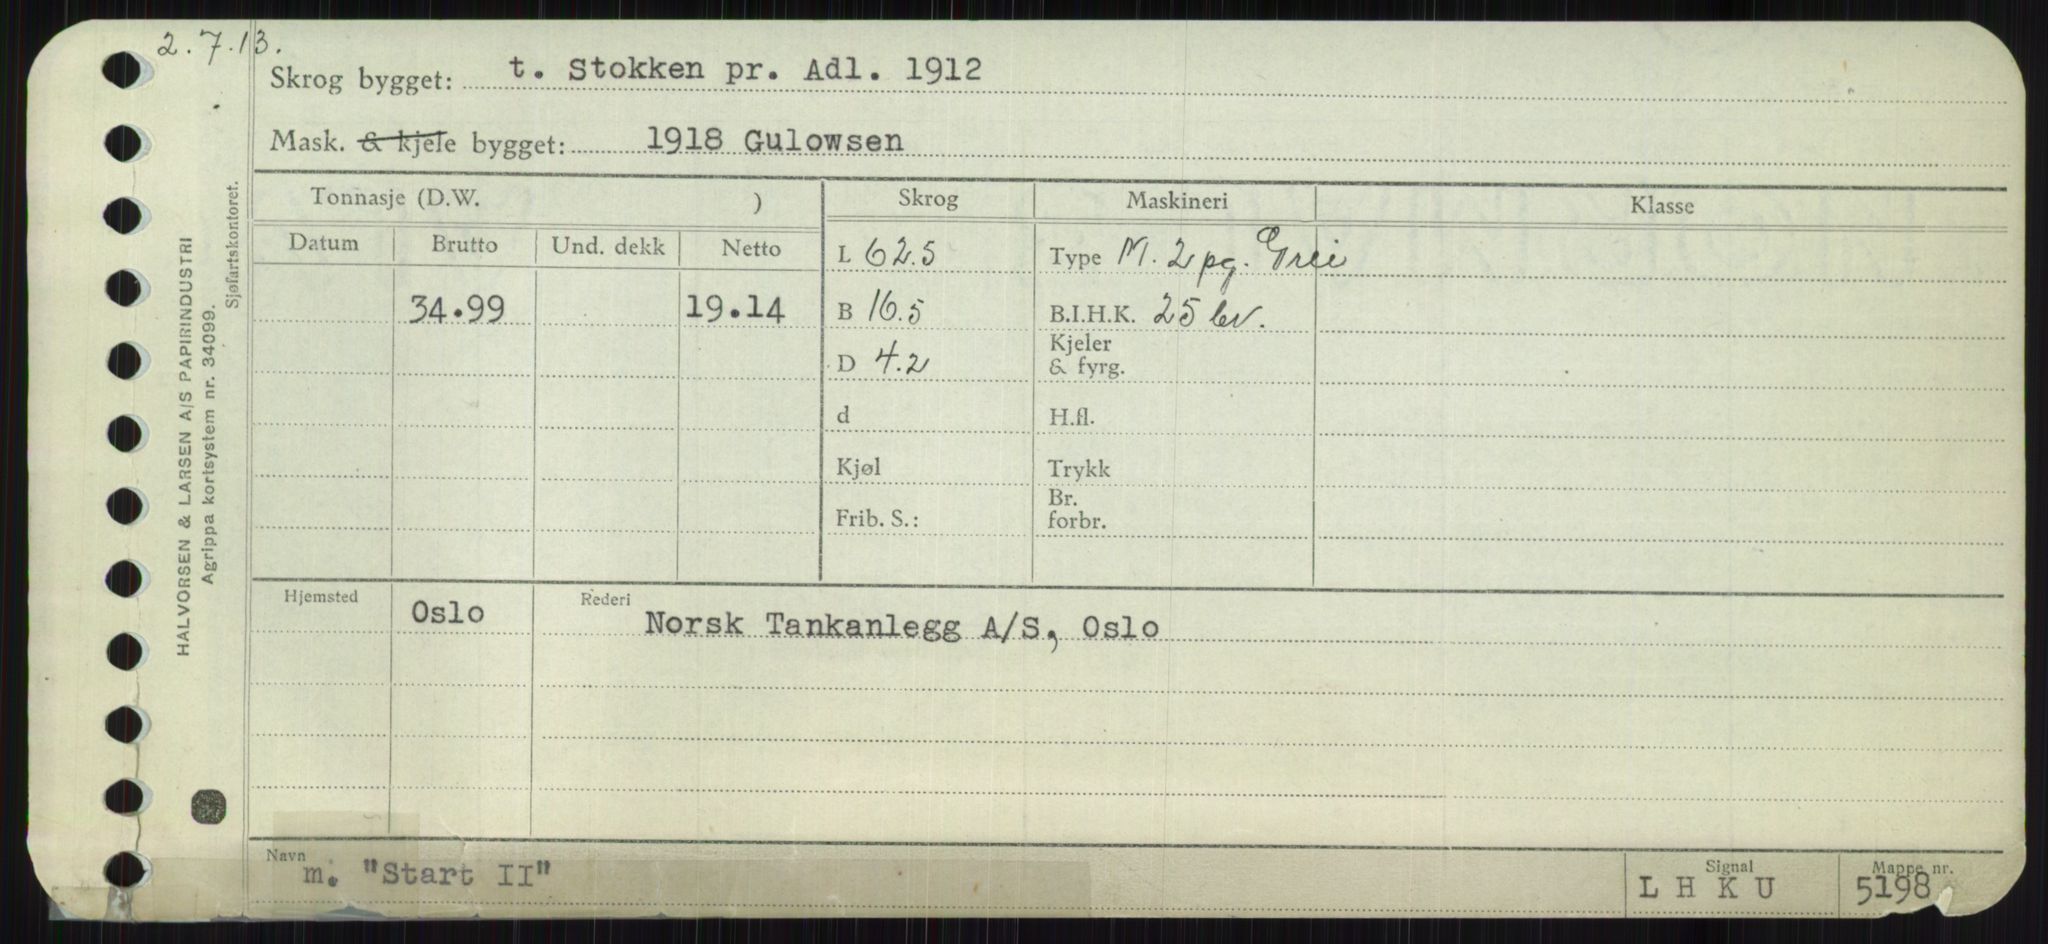 2.7.13.
Skrog bygget: t. Stokken pr. Adl. 1912
Mask. & kjele bygget: 1918 Gulowsen
Tonnasje (D.W. )
Skrog
Maskineri
Klasse
Datum
Brutto
Und. dekk
Netto
L 62.5
Type M. 2 pg. Grei
34.99
19.14
B 16.5
B.I.H.K. 25 ev.
D 4.2
Kjeler
& fyrg.
d
H.fl.
Kjøl
Trykk
Frib. S.:
Br.
forbr.
Hjemsted
Oslo
Rederi
Norsk Tankanlegg A/S, Oslo
Navn
m. "Start II"
Signal
L H K U
Mappe nr.
5198
HALVORSEN & LARSEN A/S PAPIRINDUSTRI
Agrippa kortsystem nr. 34099.
Sjøfartskontoret.